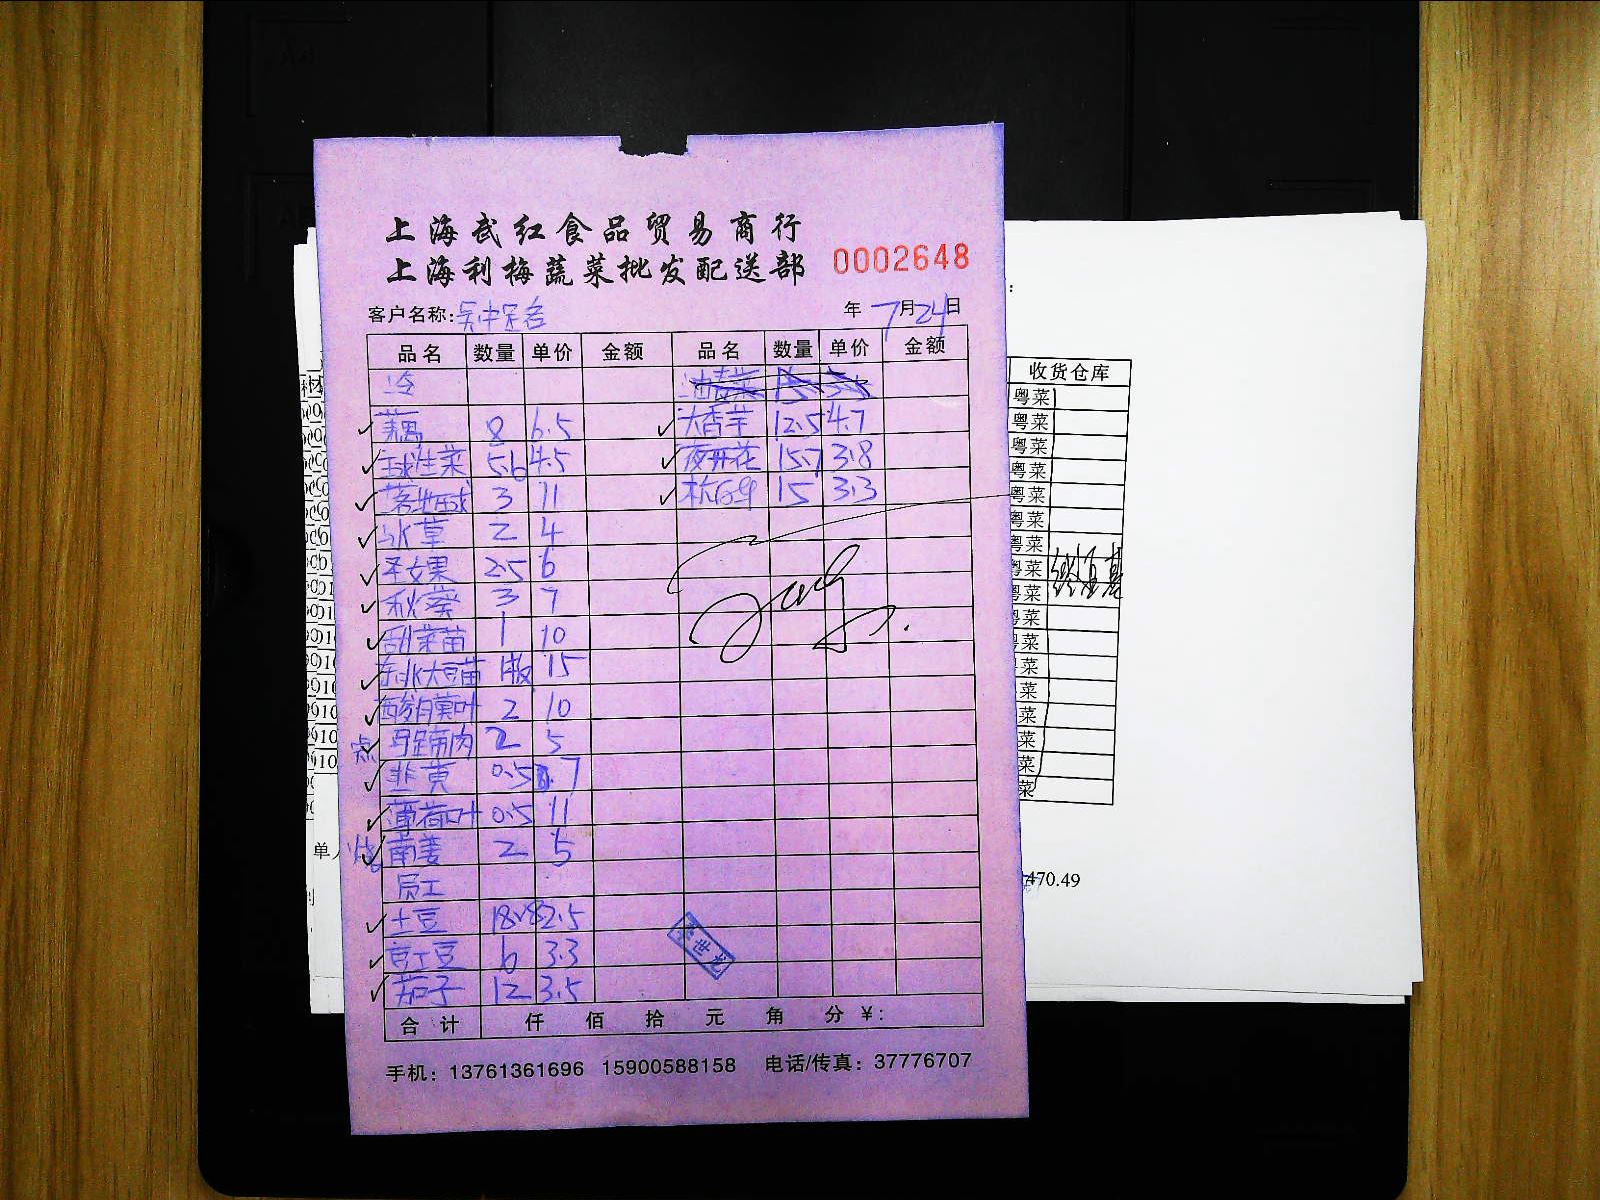 上海武红食品贸易商行
上海利梅蔬菜批发配送部
0002648
客户名称: 吴中
年 7月24日
品名 数量 单价 金额 品名 数量 单价 金额
冷 油麦菜
藕 8 6.5 大香芋 12.5 4.7
球生菜 5.6 4.5 夜开花 15.7 3.8
3 11 15 3.3
冰草 2 4
圣女果 2.5 6
秋葵 3 7
苗 1 10
东北大豆苗 1版 15
叶 2 10
点 马蹄肉 2 5
韭黄 0.5 7
薄荷叶 0.5 11
烧 南姜 2 5
员工
土豆 2.5
豇豆 6 3.3
茄子 12 3.5
李世龙
合计 仟 佰 拾 元 角 分 ¥:
手机: 13761361696 15900588158 电话/传真: 37776707
收货仓库
粤菜
粤菜
粤菜
粤菜
粤菜
粤菜
粤菜
粤菜
粤菜
粤菜
粤菜
粤菜
菜
菜
菜
菜
菜
单
470.49